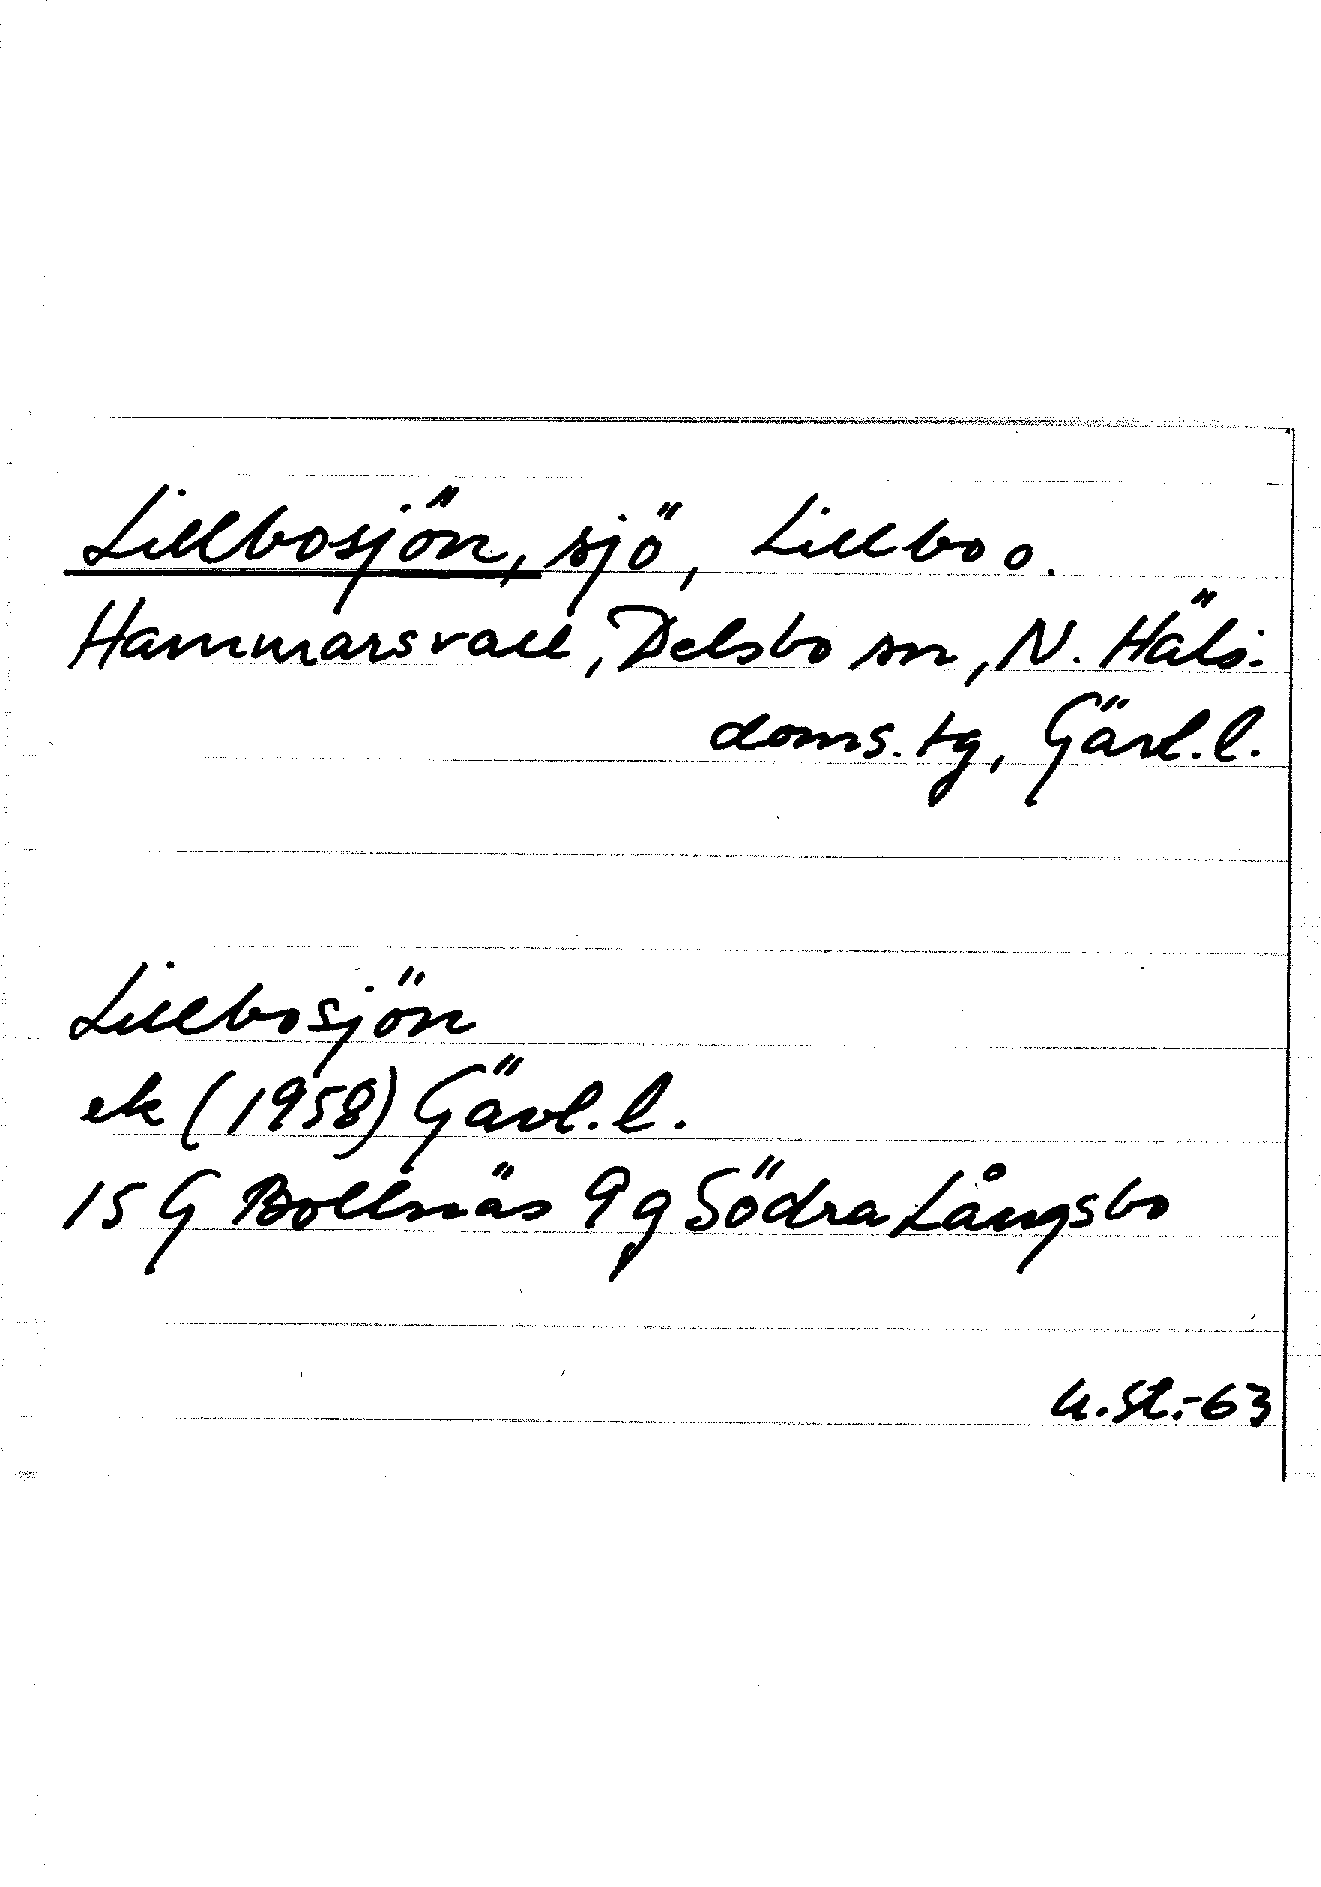 Lillbosjön, sjö, Lillbo o.
Hammarsvall, Delsbo sn, N. Häls.
doms. tg, Gävl. l.
Lillbosjön
ek (1958) Gävl. l.
15 G Bollnäs 9 g Södra Långsbo
U. St. -63